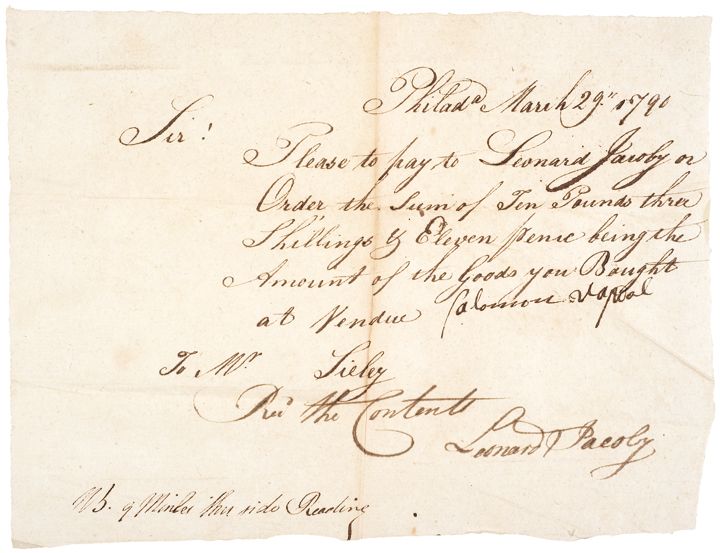 Philadᵃ March 29ᵗʰ 1790
Sir!
Please to pay to Leonard Jacoby or
Order the Sum of Ten Pounds three
Shillings & Eleven penc being the
Amount of the Goods you Bought
at Vendue Salomon
To Mʳ Sieley
Recᵈ the Contents
Leonard Jacoby
NB. 9 Miles this side Reading